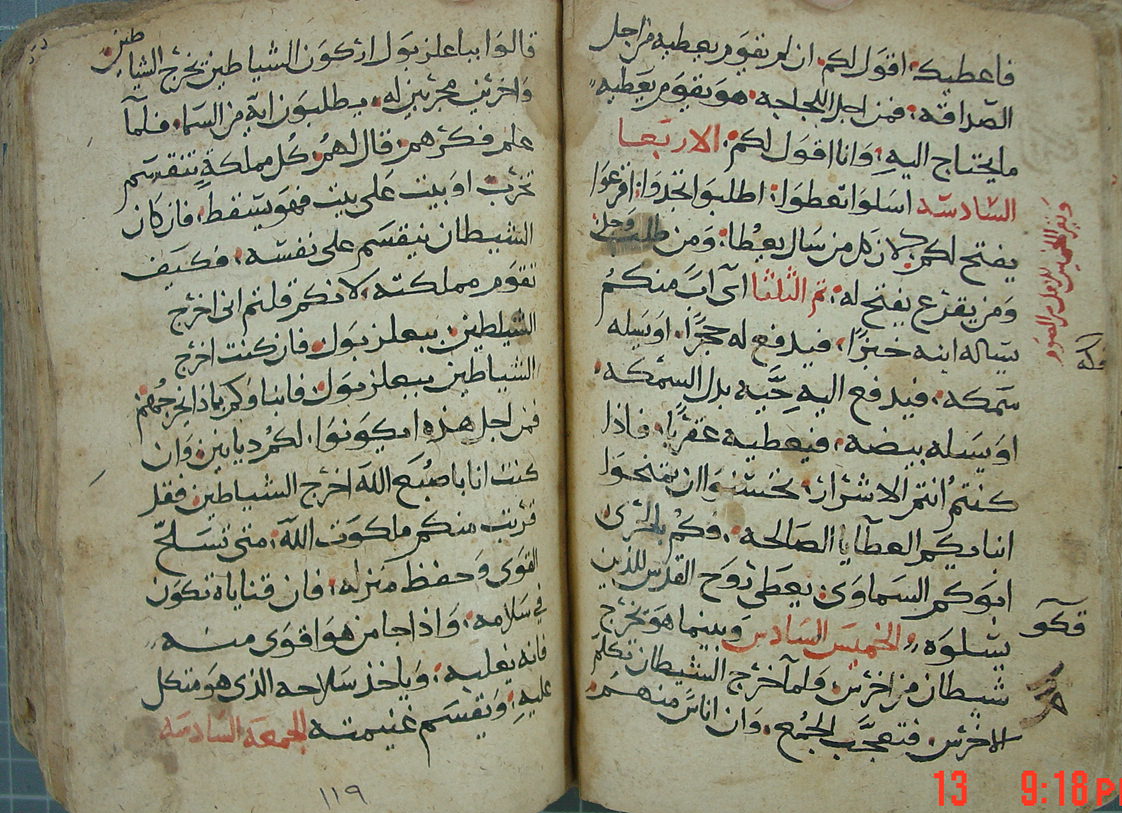 فاعطيك، اقول لكم. ان لم يقوم يعطيه من اجل
الصداقه، فمن اجل اللجاجه، هو يقوم يعطيه
ما يحتاج اليه، وانا اقول لكم، الاربعا
السادسه اسلوا تعطوا، اطلبوا تجدوا، اقرعوا
يفتح لكم، لان كل من سال يعطا، ومن طلب وجد
ومن يقرع يفتح له، تم الثلثا اى اب منكم
يساله ابنه خبزا، فيدفع له حجرا، او يسله
سمكه، فيدفع اليه حيه بدل السمكه،
او يسله بيضه، فيعطيه عقربا، فاذا
كنتم انتم الاشرار، تحسنوا ان تمنحوا
ابنايكم العطايا الصالحه، فكم بالحرى
ابوكم السماوى، يعطى روح القدس للذين
يسلوه، الخميس السادس وبينما هو يخرج
شيطان من اخرس، ولما خرج الشيطان تكلم
الاخرس، فتعجب الجموع، وان اناس منهم،
ويقرا
الخميس
الصوم
قالوا بباعلزبول اركون الشياطين يخرج الشياطين
واخرين مجربين له، يطلبون اية من السما، فلما
علم فكرهم، قال لهم، كل مملكة تنقسم
تخرب، او بيت على بيت فهو يسقط، فان كان
الشيطان ينقسم على نفسه، فكيف
تقوم مملكته، لانكم قلتم انى اخرج
الشياطين، ببعلزبول، فان كنت اخرج
الشياطين ببعلزبول، فابناوكم بماذا يخرجوهم
فمن اجل هذه يكونوا، لكم ديانين، وان
كنت انا باصبع الله اخرج الشياطين، فقد
قربت منكم ملكوت الله، متى تسلح
القوى وحفظ منزله، فان قناياه تكون
فى سلامه، واذا جا من هو اقوى منه
فانه يغلبه، وياخذ سلاحه الذى هو متكل
عليه، ويقسم غنيمته الجمعه السادسه
١١٩
13 9:18 PM